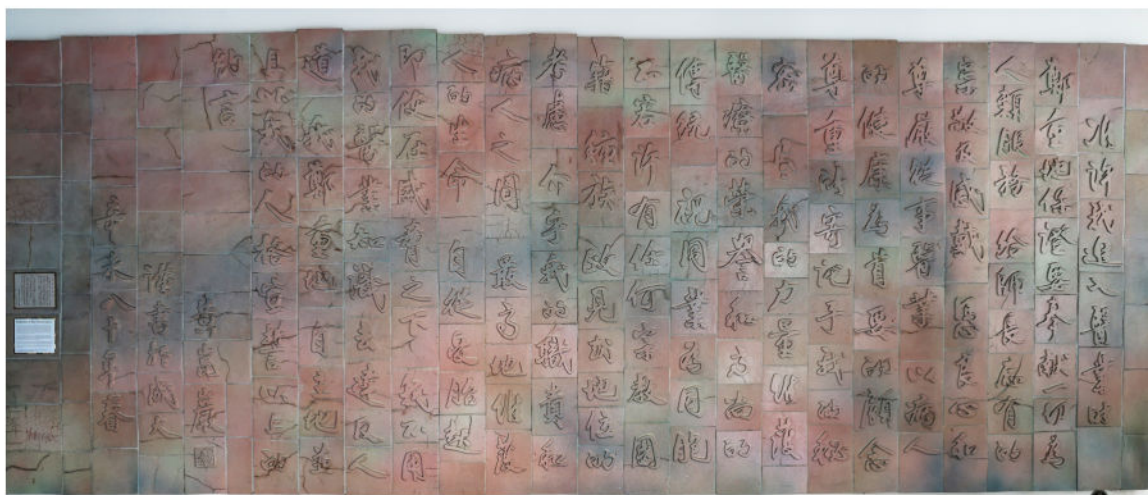 准許我進入醫業時
鄭重地保證要奉獻一切為
人類服務給師長應有的
崇敬及感戴憑良心和
尊嚴從事醫業以病人
的健康為首要的顧念
尊重所寄託予我的秘
密盡我的力量維護
醫療的榮譽和高尚的
傳統視同業為同胞
不容許有任何宗教國
籍種族政見或地位的
考慮介乎我的職責和
病人之間最高地維護
人的生命自從受胎起
即使在威脅之下我不用
我的醫業知識去違反人
道我鄭重地自主地並
且以我的人格宣誓以上的
約言
謹書於成大
辛未八十年春